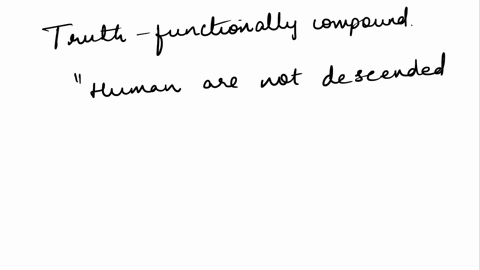 Truth - functionally compound.
"Human are not descended